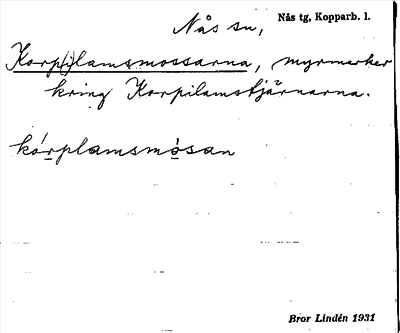 Nås sn,
Nås tg, Kopparb. l.
Korp(i)lamsmossarna, myrmarker
kring Korpilamstjärnarna.
kórplamsmòsan
Bror Lindén 1931